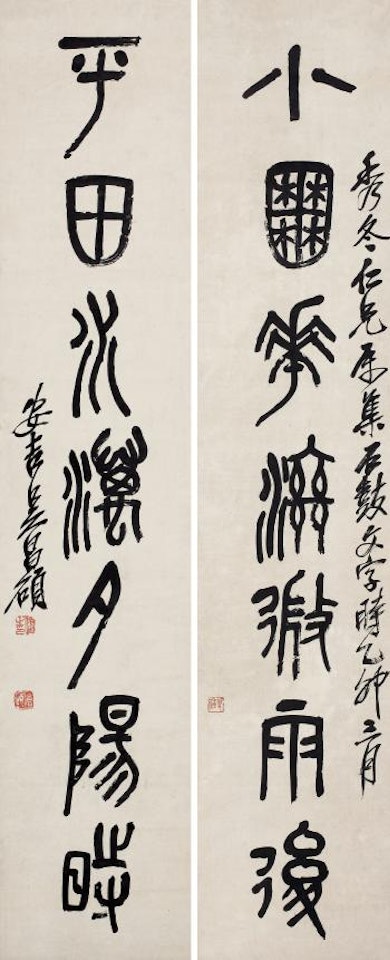 小囿華微雨後
秀冬仁兄屬集石鼓文字時乙卯三月
平田水澫夕陽時
安吉吳昌碩